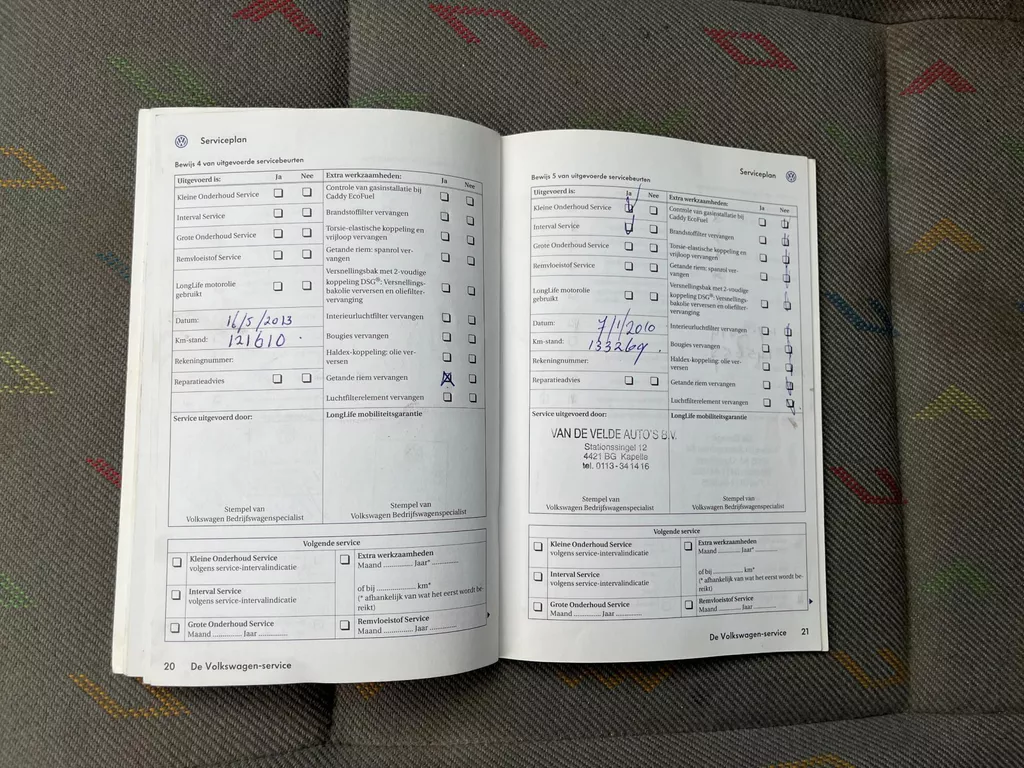 Serviceplan
Bewijs 4 van uitgevoerde servicebeurten
Uitgevoerd is: Ja Nee
Kleine Onderhoud Service
Interval Service
Grote Onderhoud Service
Remvloeistof Service
LongLife motorolie
gebruikt
Datum: 16/5/2013
Km-stand: 121610
Rekeningnummer:
Reparatieadvies
Extra werkzaamheden: Ja Nee
Controle van gasinstallatie bij
Caddy EcoFuel
Brandstoffilter vervangen
Torsie-elastische koppeling en
vrijloop vervangen
Getande riem: spanrol ver-
vangen
Versnellingsbak met 2-voudige
koppeling DSG®: Versnellings-
bakolie verversen en oliefilter-
vervanging
Interieurluchtfilter vervangen
Bougies vervangen
Haldex-koppeling: olie ver-
versen
Getande riem vervangen
Luchtfilterelement vervangen
Service uitgevoerd door:
Stempel van
Volkswagen Bedrijfswagenspecialist
LongLife mobiliteitsgarantie
Stempel van
Volkswagen Bedrijfswagenspecialist
Volgende service
Kleine Onderhoud Service
volgens service-intervalindicatie
Interval Service
volgens service-intervalindicatie
Grote Onderhoud Service
Maand ............. Jaar .............
Extra werkzaamheden
Maand ............. Jaar* .............
of bij ................. km*
(* afhankelijk van wat het eerst wordt be-
reikt)
Remvloeistof Service
Maand ............. Jaar .............
20 De Volkswagen-service
Serviceplan
Bewijs 5 van uitgevoerde servicebeurten
Uitgevoerd is: Ja Nee
Kleine Onderhoud Service
Interval Service
Grote Onderhoud Service
Remvloeistof Service
LongLife motorolie
gebruikt
Datum: 7/1/2010
Km-stand: 133269
Rekeningnummer:
Reparatieadvies
Extra werkzaamheden: Ja Nee
Controle van gasinstallatie bij
Caddy EcoFuel
Brandstoffilter vervangen
Torsie-elastische koppeling en
vrijloop vervangen
Getande riem: spanrol ver-
vangen
Versnellingsbak met 2-voudige
koppeling DSG®: Versnellings-
bakolie verversen en oliefilter-
vervanging
Interieurluchtfilter vervangen
Bougies vervangen
Haldex-koppeling: olie ver-
versen
Getande riem vervangen
Luchtfilterelement vervangen
Service uitgevoerd door:
VAN DE VELDE AUTO'S B.V.
Stationssingel 12
4421 BG Kapelle
tel. 0113-341416
Stempel van
Volkswagen Bedrijfswagenspecialist
LongLife mobiliteitsgarantie
Stempel van
Volkswagen Bedrijfswagenspecialist
Volgende service
Kleine Onderhoud Service
volgens service-intervalindicatie
Interval Service
volgens service-intervalindicatie
Grote Onderhoud Service
Maand ............. Jaar .............
Extra werkzaamheden
Maand ............. Jaar* .............
of bij ................. km*
(* afhankelijk van wat het eerst wordt be-
reikt)
Remvloeistof Service
Maand ............. Jaar .............
De Volkswagen-service 21